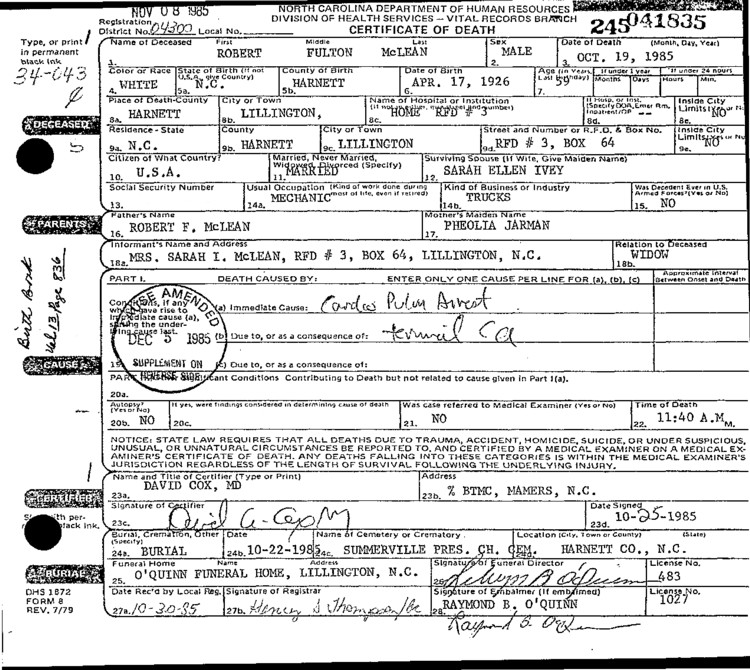 NOV 08 1985
NORTH CAROLINA DEPARTMENT OF HUMAN RESOURCES
DIVISION OF HEALTH SERVICES - VITAL RECORDS BRANCH
CERTIFICATE OF DEATH
245 041835
Registration District No. 04300 Local No.
Type, or print in permanent black ink
34-043
Name of Deceased First Middle Last Sex Date of Death (Month, Day, Year)
1. ROBERT FULTON McLEAN 2. MALE 3. OCT. 19, 1985
Color or Race State of Birth (If not U.S.A., give Country) County of Birth Date of Birth Age (In Years, Last Birthday) If under 1 year Months Days If under 24 hours Hours Min.
4. WHITE 5a. N.C. 5b. HARNETT 6. APR. 17, 1926 7. 59
Place of Death-County City or Town Name of Hospital or Institution (If not in either, give street and number) If Hosp. or Inst. (Specify DOA, Emer Rm, Inpatient/OP Inside City Limits (Yes or No)
8a. HARNETT 8b. LILLINGTON, 8c. HOME RFD # 3 8d. -- 8e. NO
DECEASED
Residence - State County City or Town Street and Number or R.F.D. & Box No. Inside City Limits (Yes or No)
9a. N.C. 9b. HARNETT 9c. LILLINGTON 9d. RFD # 3, BOX 64 9e. NO
5
Citizen of What Country? Married, Never Married, Widowed, Divorced (Specify) Surviving Spouse (If Wife, Give Maiden Name)
10. U.S.A. 11. MARRIED 12. SARAH ELLEN IVEY
Social Security Number Usual Occupation (Kind of work done during most of life, even if retired) Kind of Business or Industry Was Decedent Ever in U.S. Armed Forces? (Yes or No)
13. 14a. MECHANIC 14b. TRUCKS 15. NO
PARENTS
Father's Name Mother's Maiden Name
16. ROBERT F. McLEAN 17. PHEOLIA JARMAN
Informant's Name and Address Relation to Deceased
18a. MRS. SARAH I. McLEAN, RFD # 3, BOX 64, LILLINGTON, N.C. 18b. WIDOW
Birth Book
Vol. 13, Page 836
PART I. DEATH CAUSED BY: ENTER ONLY ONE CAUSE PER LINE FOR (a), (b), (c) Approximate Interval Between Onset and Death
Conditions, if any which gave rise to immediate cause (a), stating the underlying cause last.
(a) Immediate Cause: Cardio Pulm Arrest
AMENDED
DEC 5 1985
SUPPLEMENT ON
REVERSE SIDE
(b) Due to, or as a consequence of: terminal CA
CAUSE
19. (c) Due to, or as a consequence of:
PART II. Significant Conditions Contributing to Death but not related to cause given in Part I(a).
20a.
Autopsy? (Yes or No) If yes, were findings considered in determining cause of death Was case referred to Medical Examiner (Yes or No) Time of Death
20b. NO 20c. 21. NO 22. 11:40 A.M.
NOTICE: STATE LAW REQUIRES THAT ALL DEATHS DUE TO TRAUMA, ACCIDENT, HOMICIDE, SUICIDE, OR UNDER SUSPICIOUS,
UNUSUAL, OR UNNATURAL CIRCUMSTANCES BE REPORTED TO, AND CERTIFIED BY A MEDICAL EXAMINER ON A MEDICAL EX-
AMINER'S CERTIFICATE OF DEATH. ANY DEATHS FALLING INTO THESE CATEGORIES IS WITHIN THE MEDICAL EXAMINER'S
JURISDICTION REGARDLESS OF THE LENGTH OF SURVIVAL FOLLOWING THE UNDERLYING INJURY.
Name and Title of Certifier (Type or Print) Address
23a. DAVID COX, MD 23b. % BTMC, MAMERS, N.C.
CERTIFIER
Signature of Certifier Date Signed
23c. David A. Cox MD 23d. 10-25-1985
black ink.
Burial, Cremation, Other (Specify) Date Name of Cemetery or Crematory Location (City, Town or County) (State)
24a. BURIAL 24b. 10-22-1985 24c. SUMMERVILLE PRES. CH. CEM. 24d. HARNETT CO., N.C.
BURIAL
Funeral Home Name Address Signature of Funeral Director License No.
25. O'QUINN FUNERAL HOME, LILLINGTON, N.C. 26. 483
DHS 1872
FORM 8
REV. 7/79
Date Rec'd by Local Reg. Signature of Registrar Signature of Embalmer (If embalmed) License No.
27a. 10-30-85 27b. Henry S Thompson/ 28. RAYMOND B. O'QUINN 1027
Raymond B. O'Quinn